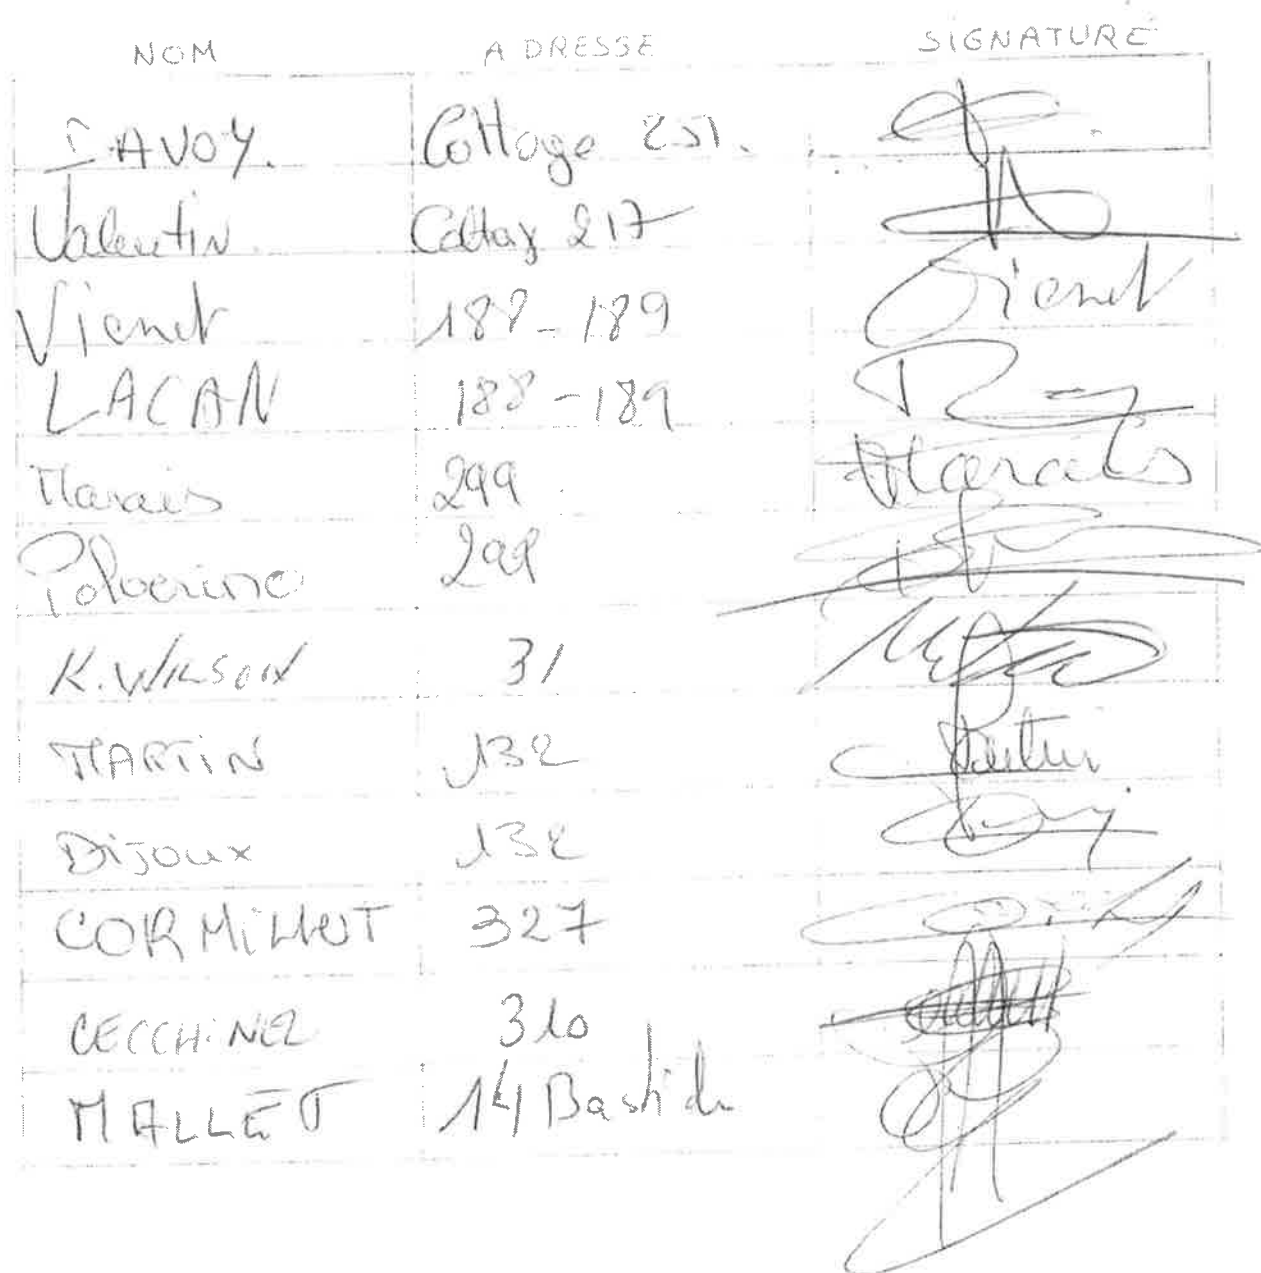 NOM ADRESSE SIGNATURE
SAVOY. Cottage 251.
Valentin Cottag 217
Vienet 188-189 Vienet
LACAN 188-189
Marais 299 Marais
Polverino 299
K. WILSON 31
MARTIN 132 Martin
Dijoux 132
CORMILLOT 327
CECCHINEL 310
MALLET 14 Bastide